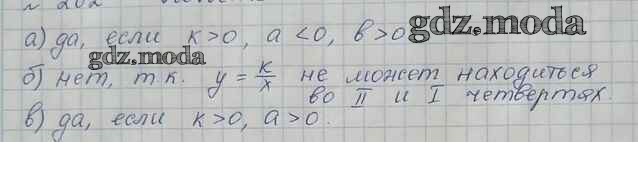 № 202
а) да, если k>0, a<0, в>0 gdz.moda
gdz.moda
б) нет, т.к. y = k/x не может находиться
во II и I четвертях.
в) да, если k>0, a>0.
gdz.moda